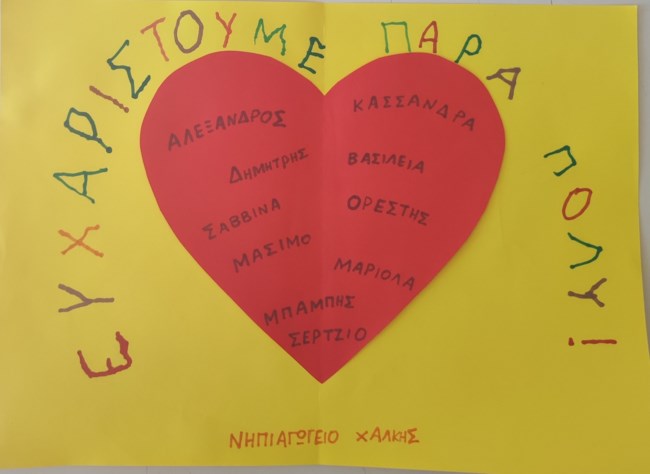 ΕΥΧΑΡΙΣΤΟΥΜΕ ΠΑΡΑ ΠΟΛΥ!
ΑΛΕΞΑΝΔΡΟΣ
ΔΗΜΗΤΡΗΣ
ΣΑΒΒΙΝΑ
ΜΑΣΙΜΟ
ΚΑΣΣΑΝΔΡΑ
ΒΑΣΙΛΕΙΑ
ΟΡΕΣΤΗΣ
ΜΑΡΙΟΛΑ
ΜΠΑΜΠΗΣ
ΣΕΡΤΖΙΟ
ΝΗΠΙΑΓΩΓΕΙΟ ΧΑΛΚΗΣ